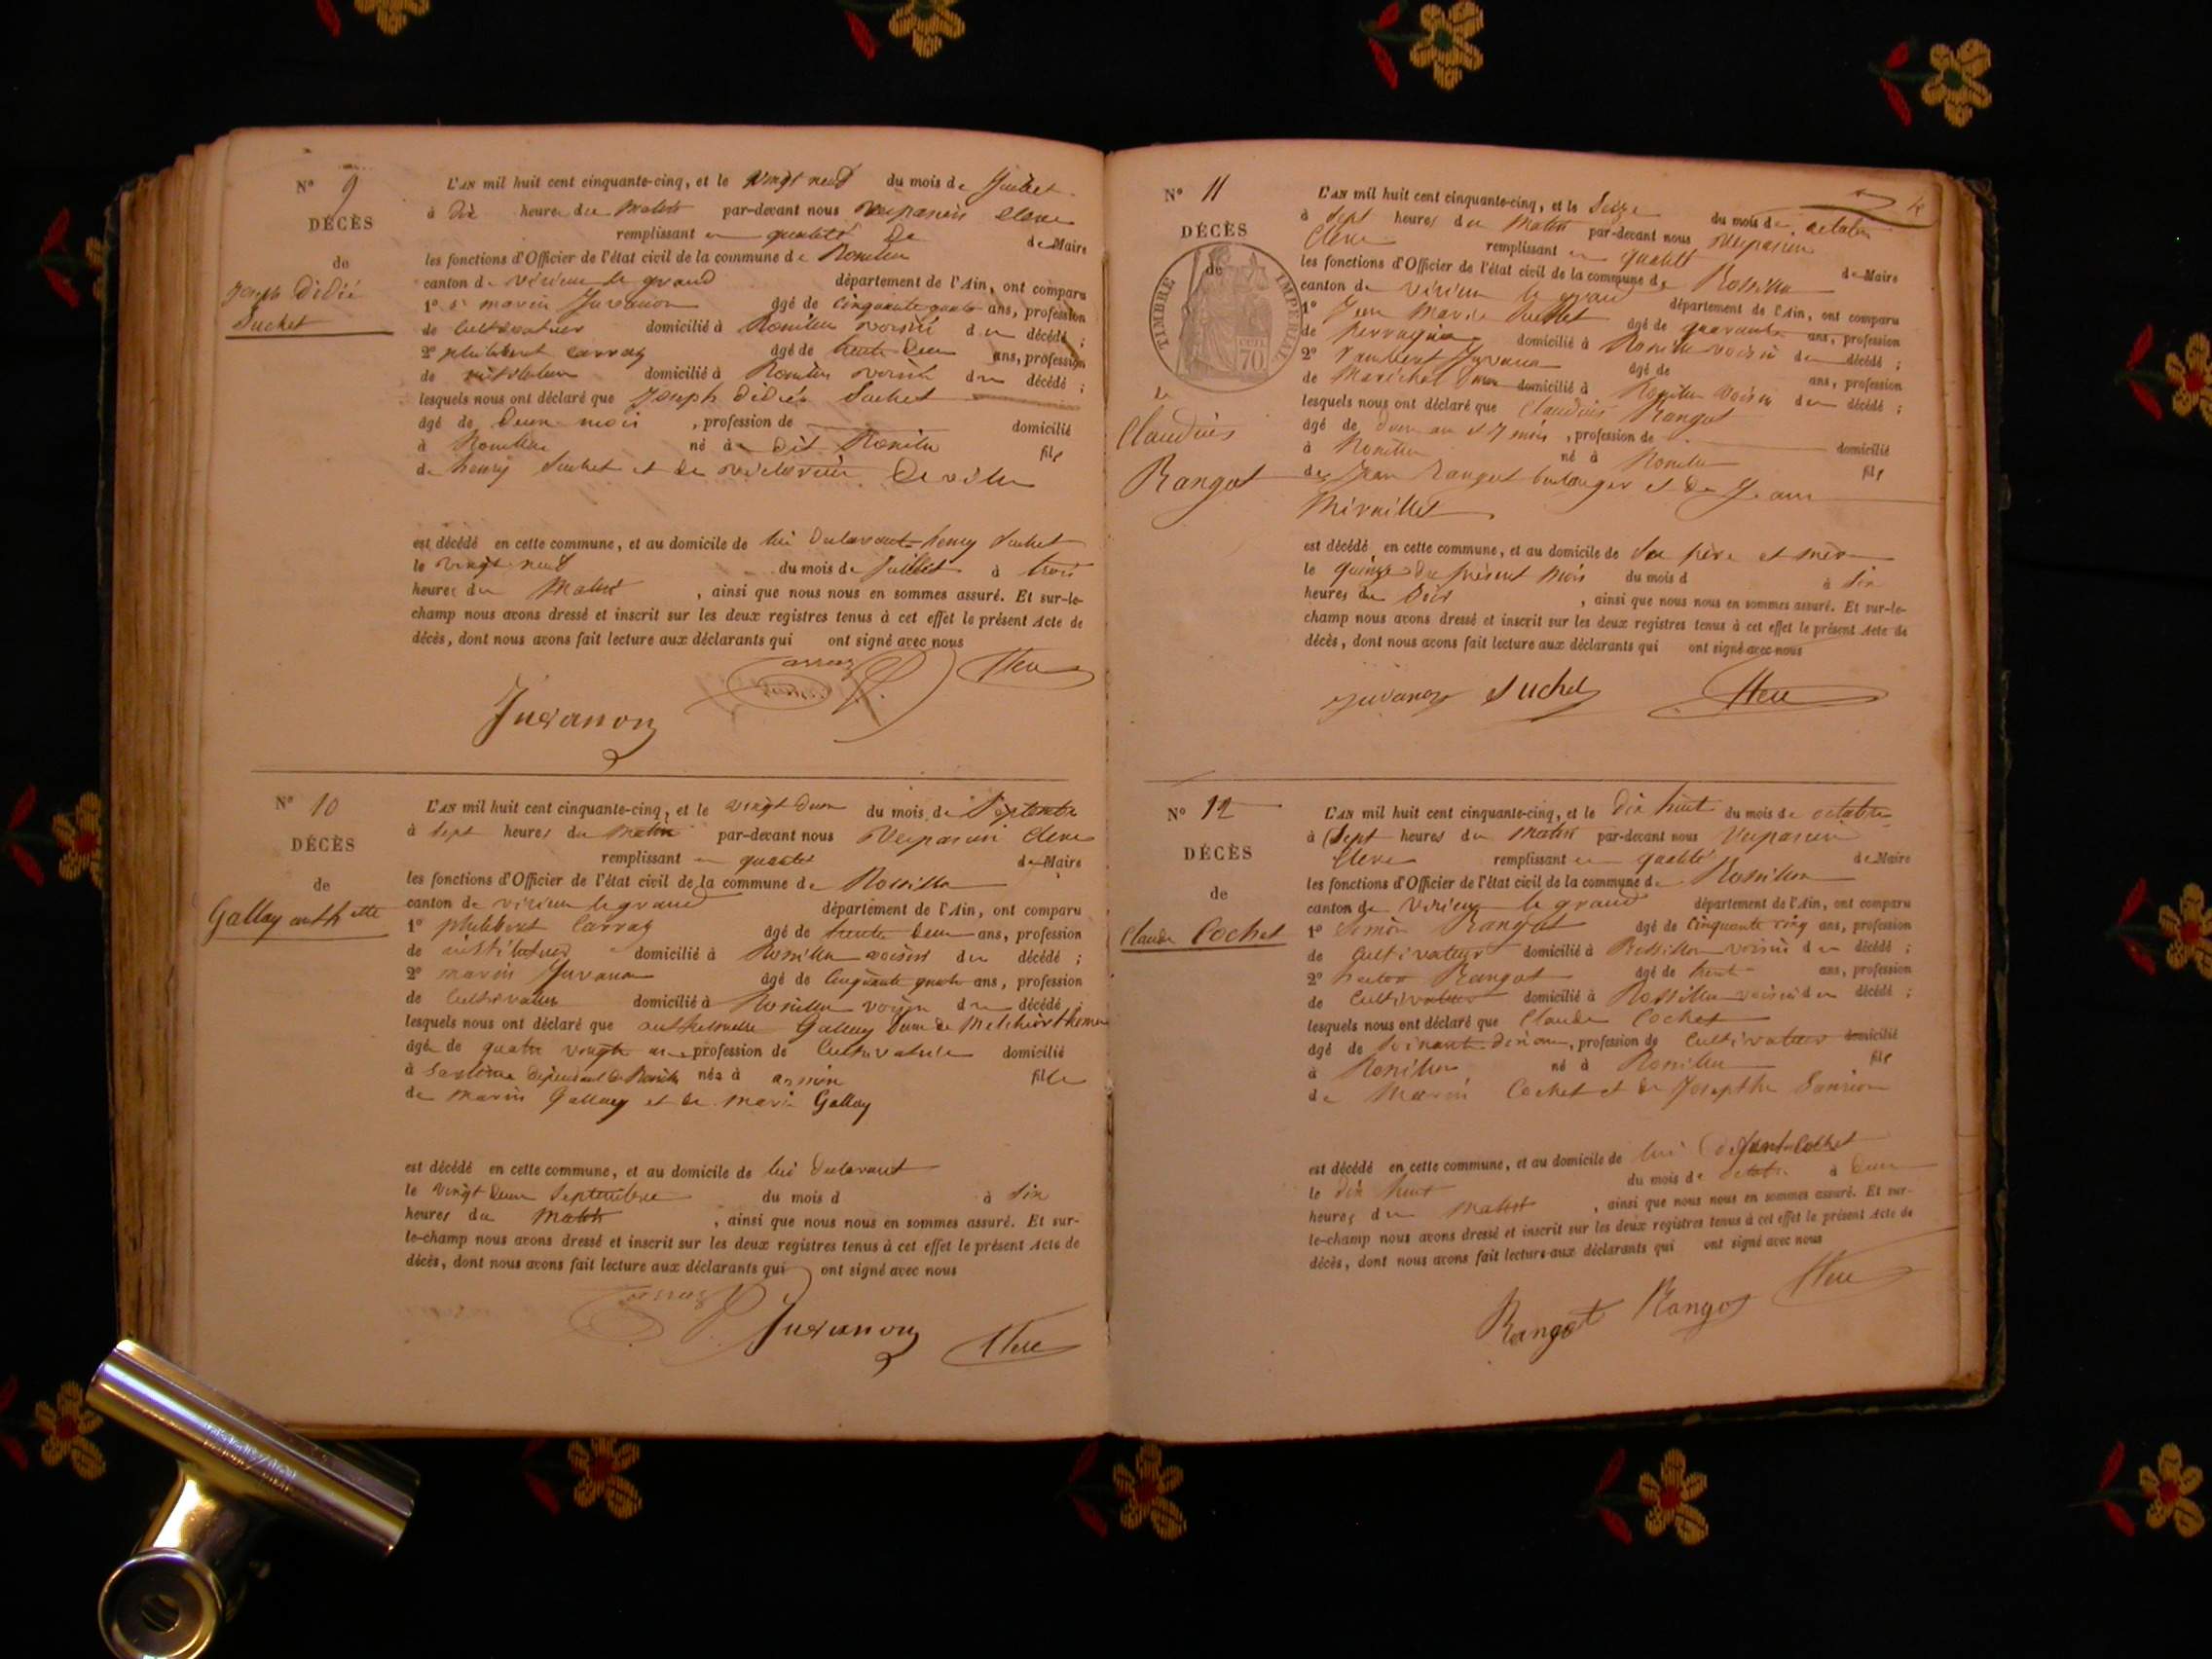 N° 9
DÉCÈS
de
Joseph Didié
Suchet
L'AN mil huit cent cinquante-cinq, et le vingt neuf du mois de Juillet
à dix heures du Matin par-devant nous Vespasien Clerc
remplissant en qualité de de Maire
les fonctions d'Officier de l'état civil de la commune de Rossillon
canton de virieu le grand département de l'Ain, ont comparu
1° marin Juvanon âgé de cinquante quatre ans, profession
de Cultivateur domicilié à Rossillon voisin du décédé ;
2° philibert Carraz âgé de trente deux ans, profession
de instituteur domicilié à Rossillon voisin du décédé ;
lesquels nous ont déclaré que Joseph Didié Suchet
âgé de Deux mois , profession de domicilié
à Rossillon né à dit Rossillon fils
de henry Suchet et de
est décédé en cette commune, et au domicile de henry Suchet
le vingt neuf du mois de Juillet à trois
heures du Matin , ainsi que nous nous en sommes assuré. Et sur-le-
champ nous avons dressé et inscrit sur les deux registres tenus à cet effet le présent Acte de
décès, dont nous avons fait lecture aux déclarants qui ont signé avec nous
Carraz Clerc
Juvanon
N° 10
DÉCÈS
de
Gallay anthtte
L'AN mil huit cent cinquante-cinq, et le vingt deux du mois de Septembre
à Sept heures du Matin par-devant nous Vespasien Clerc
remplissant en qualité de Maire
les fonctions d'Officier de l'état civil de la commune de Rossillon
canton de virieu le grand département de l'Ain, ont comparu
1° philibert Carraz âgé de trente deux ans, profession
de instituteur domicilié à Rossillon voisin du décédé ;
2° marin Juvanon âgé de Cinquante quatre ans, profession
de Cultivateur domicilié à Rossillon voisin du décédé ;
lesquels nous ont déclaré que Gallay de Melchior
âgée de quatre vingts ans profession de Cultivatrice domicilié
à dépendant de Rossillon née à fille
de marin Gallay et de marie Gallay
est décédé en cette commune, et au domicile de
le vingt deux Septembre du mois d à Six
heures du Matin , ainsi que nous nous en sommes assuré. Et sur-
le-champ nous avons dressé et inscrit sur les deux registres tenus à cet effet le présent Acte de
décès, dont nous avons fait lecture aux déclarants qui ont signé avec nous
Carraz Juvanon Clerc
N° 11
DÉCÈS
de
TIMBRE IMPERIAL
70
Claudius
Rangot
L'AN mil huit cent cinquante-cinq, et le Seize du mois de octobre
à Sept heures du Matin par-devant nous Vespasien
Clerc remplissant en qualité de Maire
les fonctions d'Officier de l'état civil de la commune de Rossillon
canton de virieu le grand département de l'Ain, ont comparu
1° Jean Marie Suchet âgé de quarante ans, profession
de domicilié à Rossillon voisin du décédé ;
2° Juvanon âgé de ans, profession
de Maréchal domicilié à Rossillon voisin du décédé ;
lesquels nous ont déclaré que Claudius Rangot
âgé de deux an et 7 mois , profession de domicilié
à Rossillon né à Rossillon fils
de Jean Rangot boulanger et de
est décédé en cette commune, et au domicile de Ses père et mère
le quinze du présent mois du mois d à Six
heures du Soir , ainsi que nous nous en sommes assuré. Et sur-le-
champ nous avons dressé et inscrit sur les deux registres tenus à cet effet le présent Acte de
décès, dont nous avons fait lecture aux déclarants qui ont signé avec nous
Juvanon Suchet Clerc
N° 12
DÉCÈS
de
Claude Cochet
L'AN mil huit cent cinquante-cinq, et le dix huit du mois de octobre
à Sept heures du Matin par-devant nous Vespasien
Clerc remplissant en qualité de Maire
les fonctions d'Officier de l'état civil de la commune de Rossillon
canton de Virieu le grand département de l'Ain, ont comparu
1° Simon Rangot âgé de Cinquante cinq ans, profession
de Cultivateur domicilié à Rossillon voisin du décédé ;
2° Rangot âgé de ans, profession
de Cultivateur domicilié à Rossillon voisin du décédé ;
lesquels nous ont déclaré que Claude Cochet
âgé de Soixante dix ans, profession de Cultivateur domicilié
à Rossillon né à Rossillon fils
de Marin Cochet et de Josephte
est décédé en cette commune, et au domicile de lui Cochet
le dix huit du mois de octobre à Deux
heures du Matin , ainsi que nous nous en sommes assuré. Et sur-
le-champ nous avons dressé et inscrit sur les deux registres tenus à cet effet le présent Acte de
décès, dont nous avons fait lecture aux déclarants qui ont signé avec nous
Rangot Rangot Clerc